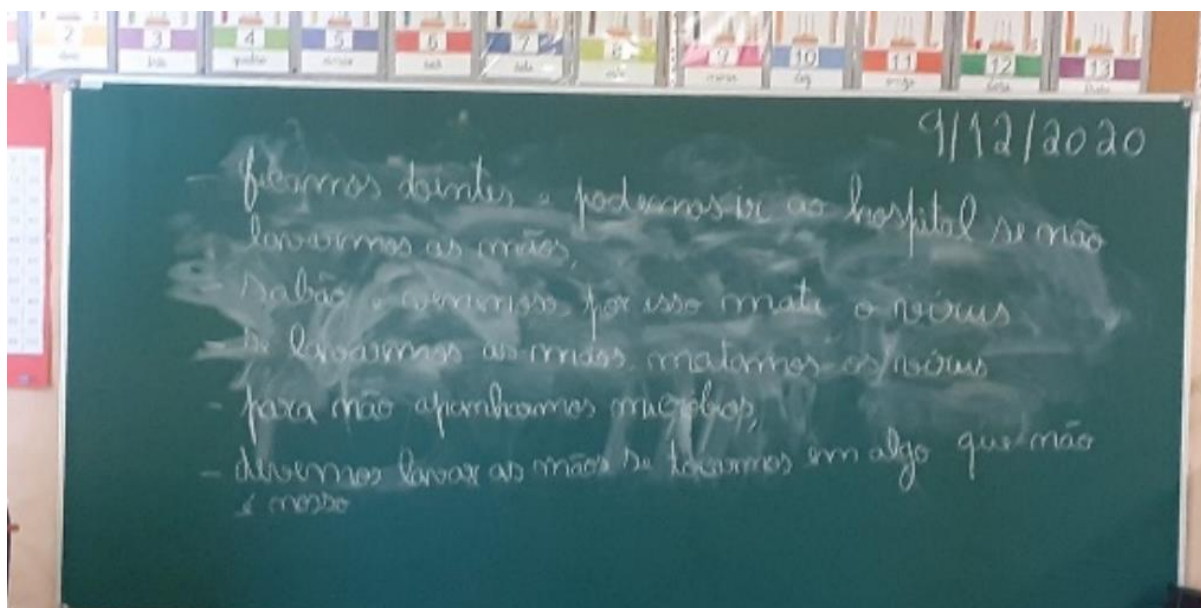 2 3 4 5 6 7 8 9 10 11 12 13
9/12/2020
- ficamos doentes e podemos ir ao hospital se não
lavarmos as mãos,
- Sabão é venenoso, por isso mata o vírus
- Se lavarmos as mãos, matamos os vírus
- para não apanharmos micróbios,
- devemos lavar as mãos se tocarmos em algo que não
é nosso